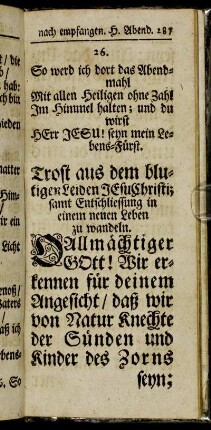 nach empfangen. H. Abend. 287
26.
So werd ich dort das Abend-
mahl
Mit allen Heiligen ohne Zahl
Im Himmel halten; und du
wirst
HErr JESU! seyn mein Le-
bens-Fürst.
Trost aus dem blu-
tigen Leiden JEsuChristi;
samt Entschliessung in
einem neuen Leben
zu wandeln.
O Allmächtiger
GOtt! Wir er-
kennen für deinem
Angesicht/ daß wir
von Natur Knechte
der Sünden und
Kinder des Zorns
seyn;